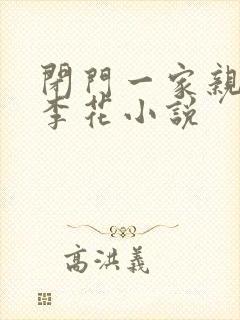 閉門一家親
李花小說
高洪義